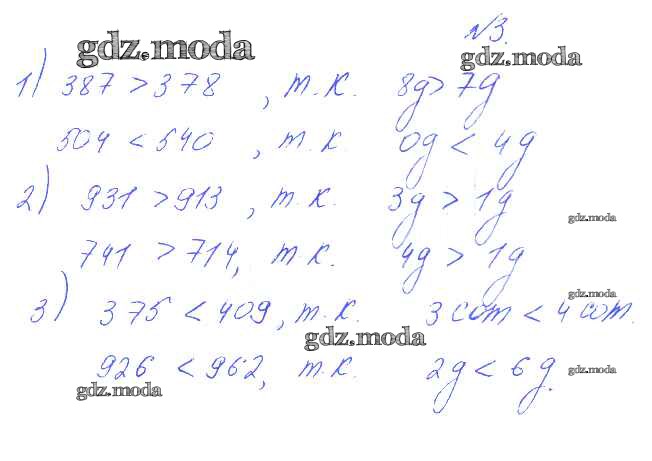 №3.
gdz.moda
gdz.moda
1) 387 > 378, т.к. 8g > 7g
504 < 540, т.к. 0g < 4g
2) 931 > 913, т.к. 3g > 1g
gdz.moda
741 > 714, т.к. 4g > 1g
gdz.moda
3) 375 < 409, т.к. 3 сот < 4 сот.
gdz.moda
926 < 962, т.к. 2g < 6g.
gdz.moda
gdz.moda